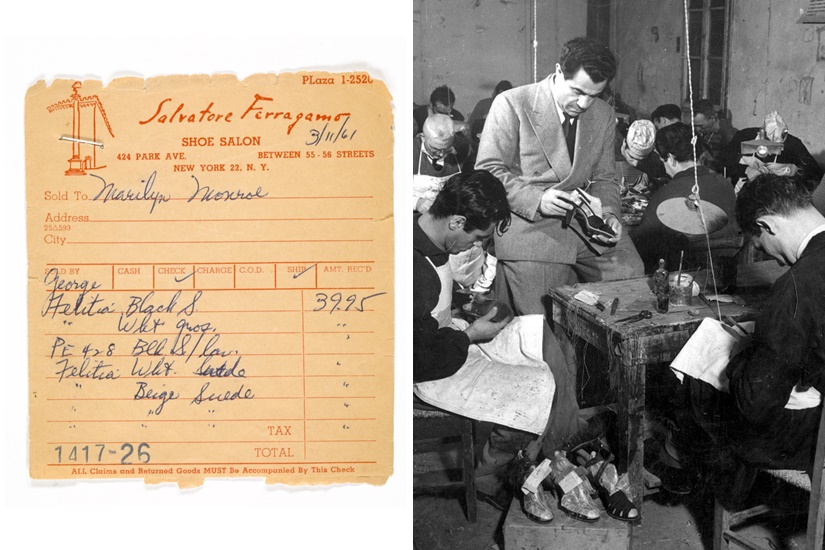 PLaza 1-2520
Salvatore Ferragamo
SHOE SALON
3/11/61
424 PARK AVE. BETWEEN 55-56 STREETS
NEW YORK 22, N. Y.
Sold To Marilyn Monroe
Address
City
SOLD BY CASH CHECK CHARGE C.O.D. SHIP AMT. REC'D
George
Felitia Black S. 39.95
" Wht gros. "
PE 428 Blk S/ "
Felitia Wht. "
" Beige Suede "
" " " "
TAX
1417-26 TOTAL
ALL Claims and Returned Goods MUST Be Accompanied By This Check